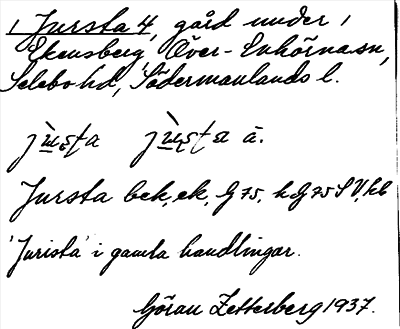 1 Jursta 4, gård under 1
Ekensberg, Över-Enhörna sn,
Selebo hd, Södermanlands l.
Jursta bek, ek, G 75, h G 75 S V, hb
'Jurista' i gamla handlingar.
Göran Zetterberg 1937.